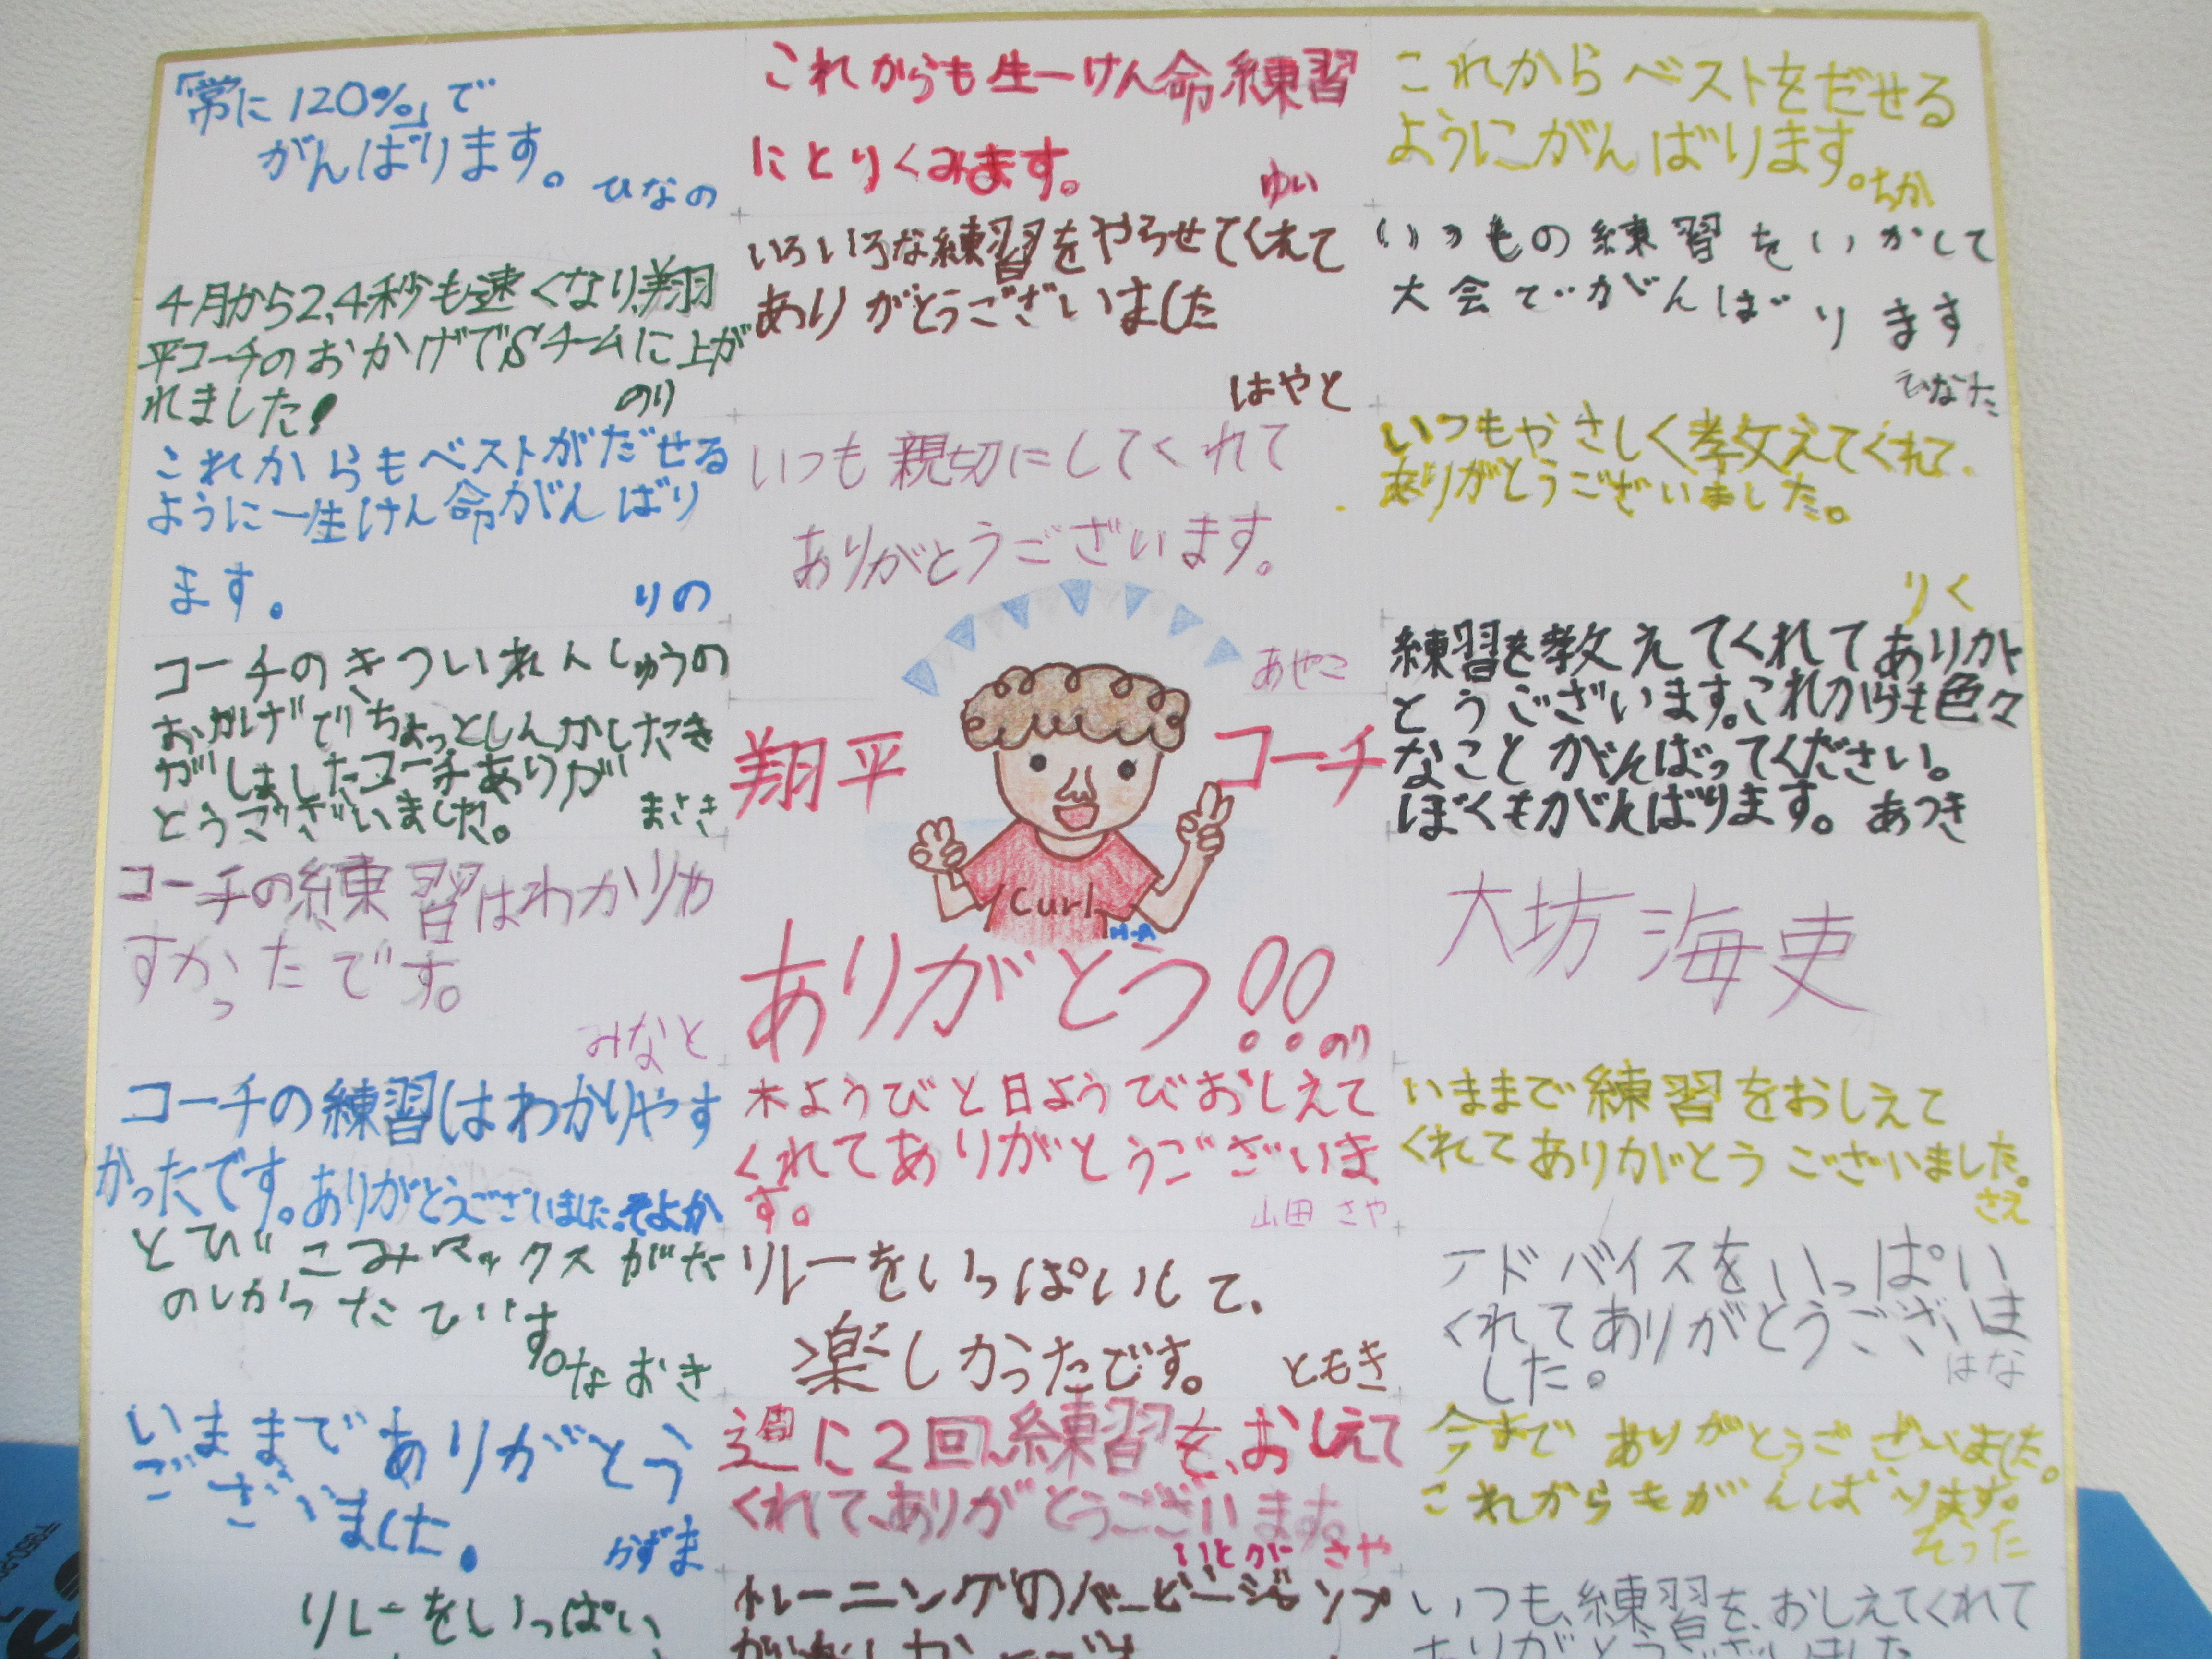 「常に120%」で
がんばります。
ひなの
4月から2,4秒も速くなり、翔
平コーチのおかげでSチームに上が
れました!
のり
これからもベストがだせる
ように一生けん命がんばり
ます。
りの
コーチのきついれんしゅうの
おかげで、ちょっとしんかしたき
がしましたコーチありが
とうございました。
まさき
コーチの練習はわかりや
すかったです。
みなと
コーチの練習はわかりやす
かったです。ありがとうございました。そよか
とびこみマックスがた
のしかったです。
なおき
いままでありがとう
ございました。
かずま
リレーをいっぱい
これからも生一けん命練習
にとりくみます。
ゆい
いろいろな練習をやらせてくれて
ありがとうございました
はやと
いつも親切にしてくれて
ありがとうございます。
あやこ
翔平
コーチ
Curl
H-A
ありがとう!!
のり
木ようびと日ようびおしえて
くれてありがとうございま
す。
山田さや
リレーをいっぱいして、
楽しかったです。
ともき
週に2回、練習を、おしえて
くれて、ありがとうございます。
さや
トレーニングのバービージャンプ
これからベストをだせる
ようにがんばります。
ちか
いつもの練習をいかして
大会でがんばります
ひなた
いつもやさしく教えてくれて
ありがとうございました。
りく
練習を教えてくれてありが
とうございます。これからも色々
なことがんばってください。
ぼくもがんばります。あつき
大坊海吏
いままで練習をおしえて
くれてありがとうございました。
さえ
アドバイスをいっぱい
くれてありがとうございま
した。
はな
今までありがとうございました。
これからもがんばります。
そうた
いつも、練習を、おしえてくれて
ありがとうございました